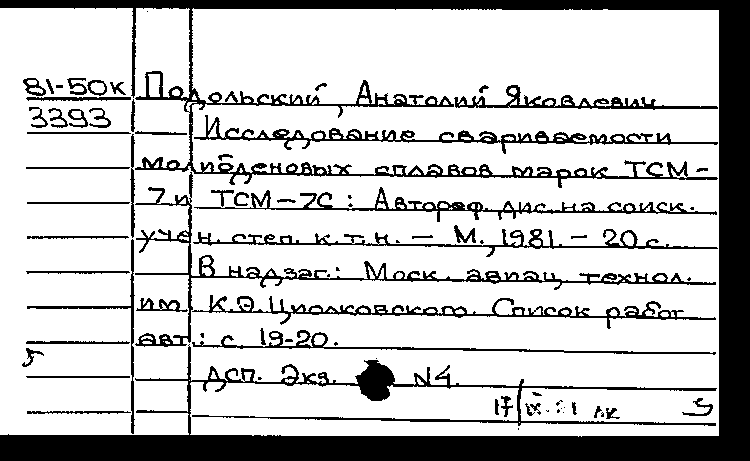 81-50к Подольский, Анатолий Яковлевич
3393 Исследование свариваемости
молибденовых сплавов марок ТСМ-
7 и ТСМ-7С : Автореф. дис. на соиск.
учен. степ. к.т.н. — М., 1981. - 20 с.
В надзаг.: Моск. авиац. технол.
им. К.Э.Циолковского. Список работ
авт.: с. 19-20.
Дсп. Экз. N4.
17/IX-81